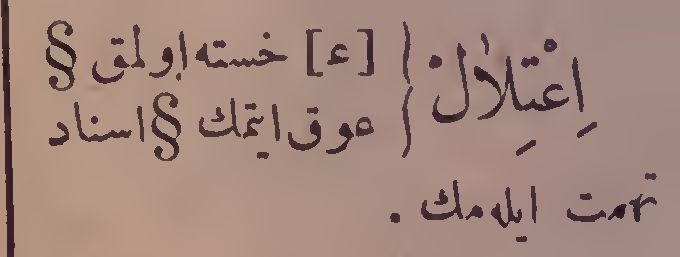 اِعْتِلاَلْ { [ع] خسته اولمق §
عوق ايتمك § اسناد
تهمت ايله‌مك .